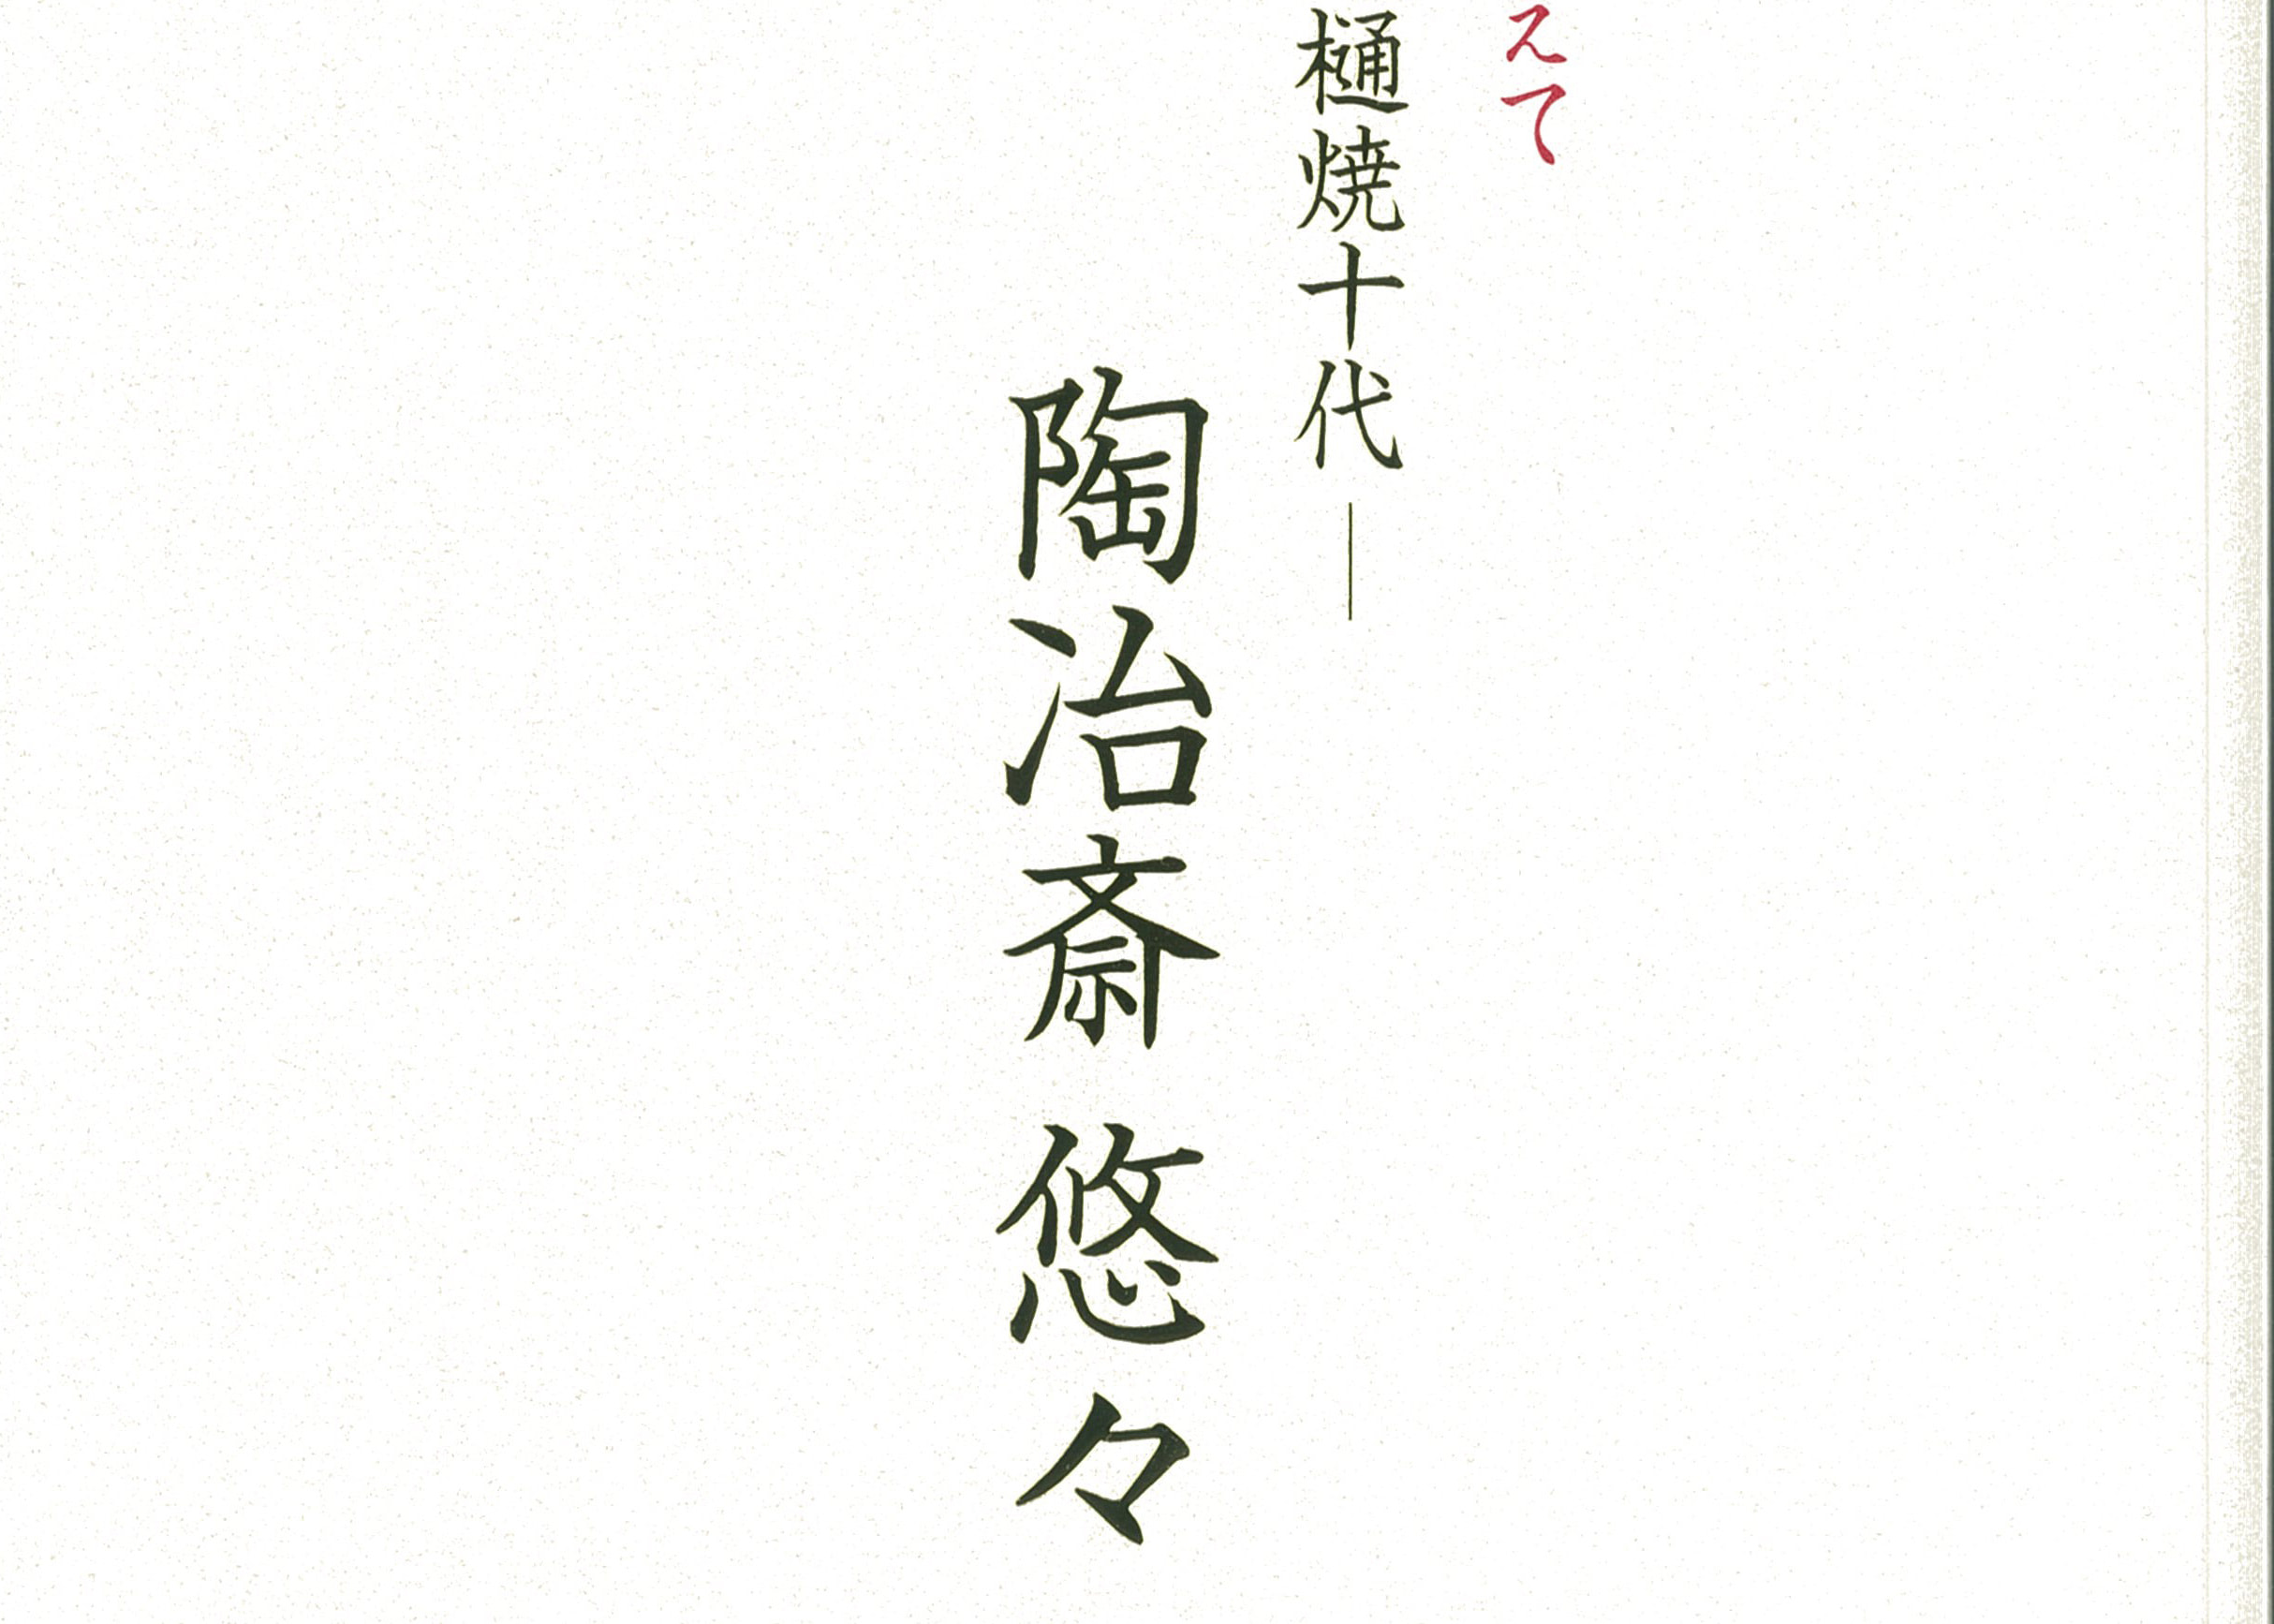 えて
樋焼十代―
陶冶斎 悠々